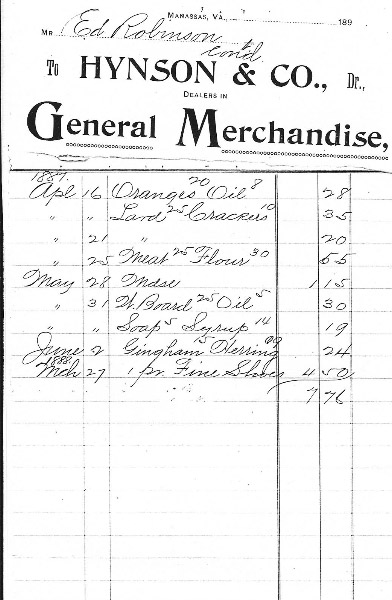 Manassas, Va, 189
Mr Ed Robinson
Con'd
To HYNSON & CO., Dr.,
Dealers in
General Merchandise,
1887.
Apl 16 Oranges 20 Oil 8 28
" " Lard 25 Crackers 10 35
" 21 " 20
" 25 Meat 25 Flour 30 55
May 28 Mdse 1 15
" 31 W. Board 25 Oil 5 30
" " Soap 5 Syrup 14 19
June 2 Gingham 15 Herring 09 24
1888
Mch 27 1 pr. Fine Shoes 4 50
7 76